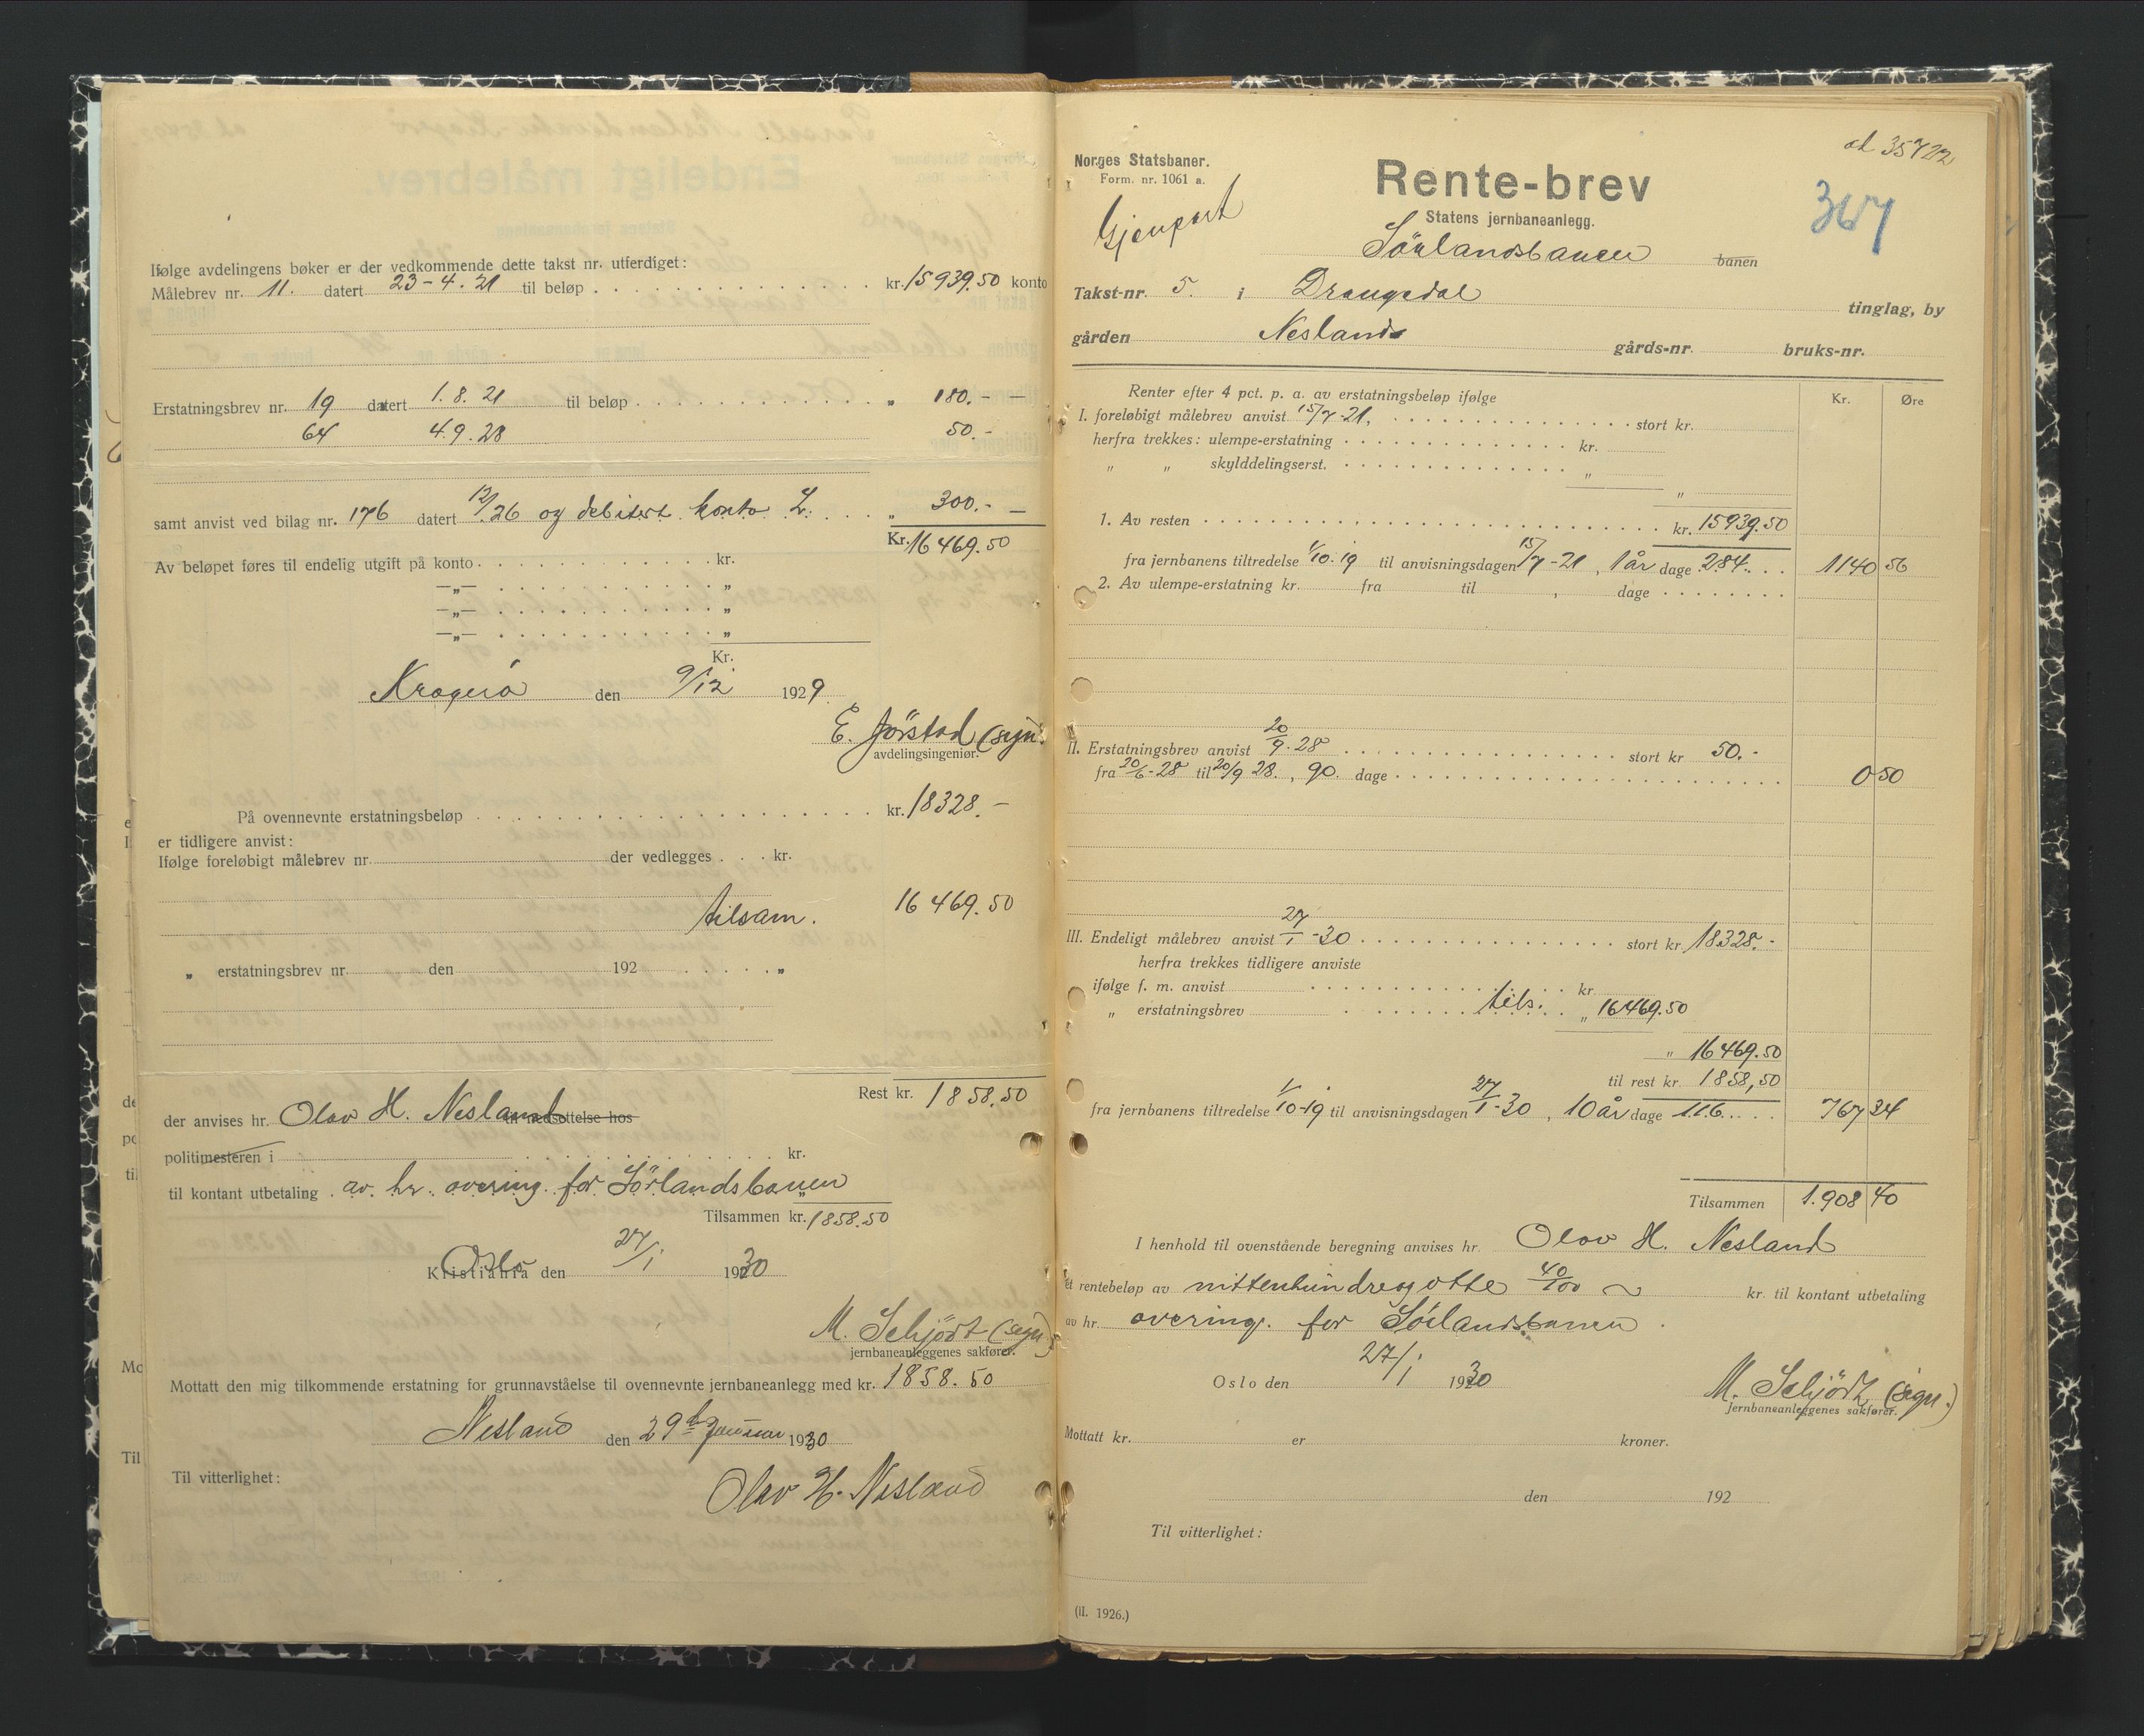 Ifølge avdelingens bøker er der vedkommende dette takst nr. utferdiget:
Målebrev nr. 11. datert 23-4.21 til beløp kr. 15939.50 konto
Erstatningsbrev nr. 19 datert 1.8.21 til beløp „ 180.- —
64 4.9.28 50.-
samt anvist ved bilag nr. 176 datert 12/.26 og debitert konto L. „ 300.- —
Kr. 16469.50
Av beløpet føres til endelig utgift på konto kr.
—„— „
—„— „
—„— „
Kr.
Kragerö den 9/12 1929
E. Jörstad (sign.
avdelingsingeniør.
På ovennevnte erstatningsbeløp kr. 18328.—
er tidligere anvist:
Ifølge foreløbigt målebrev nr. der vedlegges kr.
tilsam. 16469.50
„ erstatningsbrev nr. den 192 „
Rest kr. 1858.50
der anvises hr. Olav H. Nesland til nedsettelse hos
politimesteren i kr.
til kontant utbetaling av hr. overing. for Sörlandsbanen „
Tilsammen kr. 1858.50
Oslo
Kristiania den 27/1 1930
M. Schjödt (sign)
jernbaneanleggenes sakfører.
Mottatt den mig tilkommende erstatning for grunnavståelse til ovennevnte jernbaneanlegg med kr. 1858.50
Nesland den 29de Januar 1930
Til vitterlighet:
Olav H. Nesland
ad 35722
Norges Statsbaner.
Form. nr. 1061 a.
Rente-brev
367
Gjenpart
Statens jernbaneanlegg.
Sörlandsbanen banen
Takst-nr. 5. i Drangedal tinglag, by
gården Nesland gårds-nr. bruks-nr.
Renter efter 4 pct. p. a. av erstatningsbeløp ifølge Kr. Øre
I. foreløbigt målebrev anvist 15/7-21, stort kr.
herfra trekkes: ulempe-erstatning kr.
„ „ skylddelingserst. „
„
1. Av resten kr. 15939.50
fra jernbanens tiltredelse 1/10.19 til anvisningsdagen 15/7-21, 1 år dage 284 1140 56
2. Av ulempe-erstatning kr. fra til , dage
II. Erstatningsbrev anvist 20/9.28 stort kr 50.-
fra 20/6-28 til 20/9 28., 90. dage 0 50
III. Endeligt målebrev anvist 27/1-30 stort kr 18328.-
herfra trekkes tidligere anviste
ifølge f. m. anvist kr
„ erstatningsbrev tils. „ 16469.50
„ 16469.50
til rest kr. 1858,50
fra jernbanens tiltredelse 1/10-19 til anvisningsdagen 27/1-30, 10 år dage 116 767 34
Tilsammen 1.908 40
I henhold til ovenstående beregning anvises hr. Olav H. Nesland
et rentebeløp av nittenhundreogotte 40/100 kr. til kontant utbetaling
av hr. overing. for Sörlandsbanen.
Oslo den 27/1 1930
M. Schjödt (sign.)
jernbaneanleggenes sakfører.
Mottatt kr. er kroner.
den 192
Til vitterlighet:
(II. 1926.)